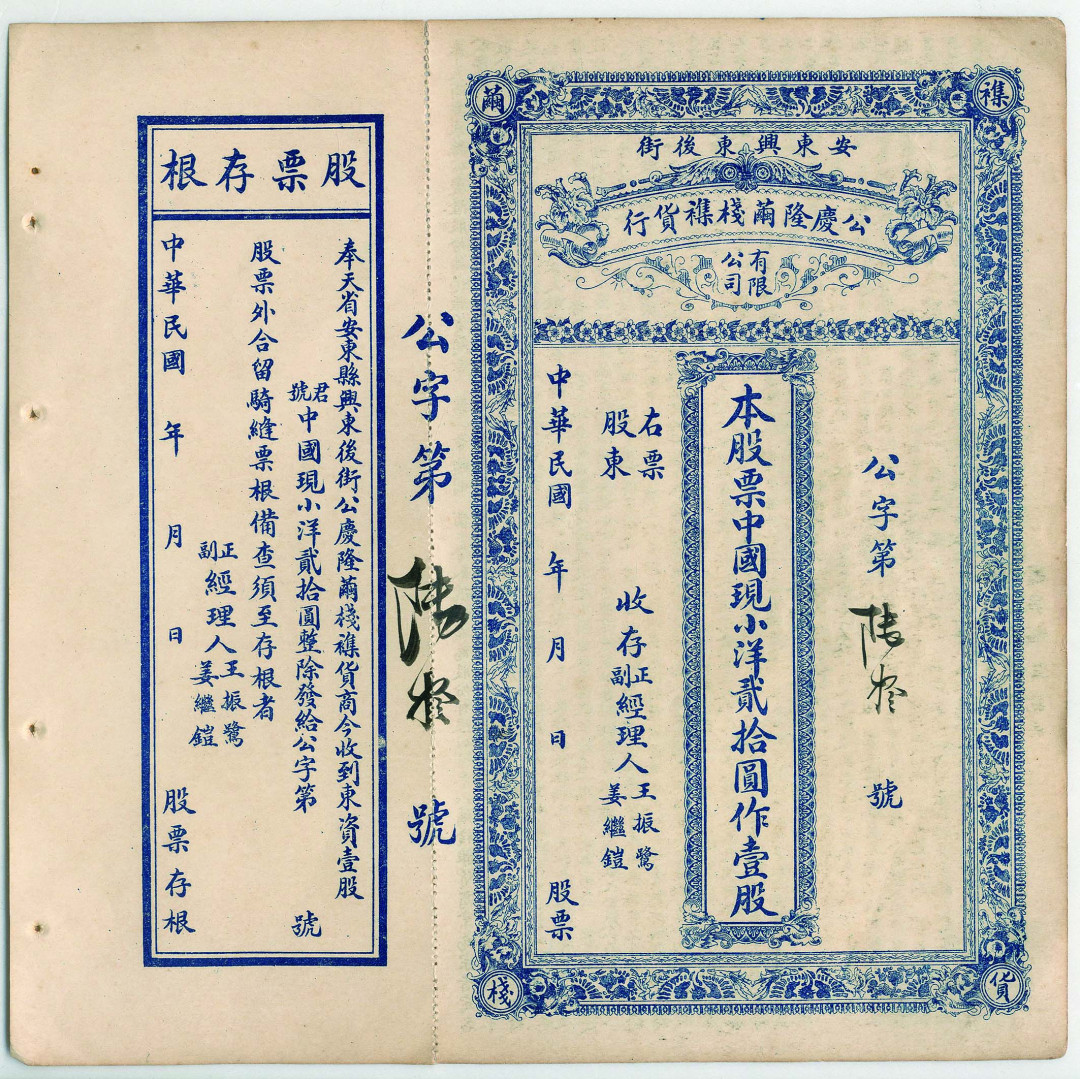 襍
繭
安東興東後街
公慶隆繭棧襍貨行
有限
公司
公字第陸 號
本股票中國現小洋貳拾圓作壹股
右票
股東
收存
正
副
經理人
王振鷺
姜繼鎧
中華民國 年 月 日 股票
貨
棧
公字第陸 號
股票存根
奉天省安東縣興東後街公慶隆繭棧襍貨商今收到東資壹股
君
號
中國現小洋貳拾圓整除發給公字第 號
股票外合留騎縫票根備查須至存根者
正
副
經理人
王振鷺
姜繼鎧
中華民國 年 月 日 股票存根